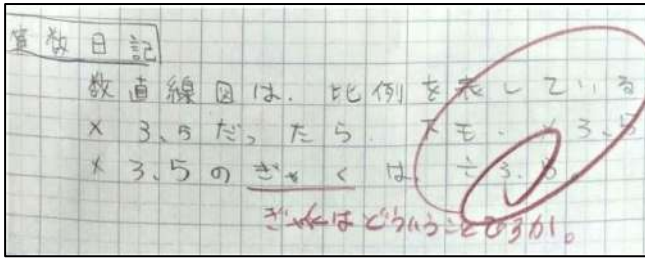 算数日記
数直線図は、比例を表している
×3.5だったら、下も、×3.5
×3.5のぎゃくは、÷3.5。
ぎゃくはどういうことですか。